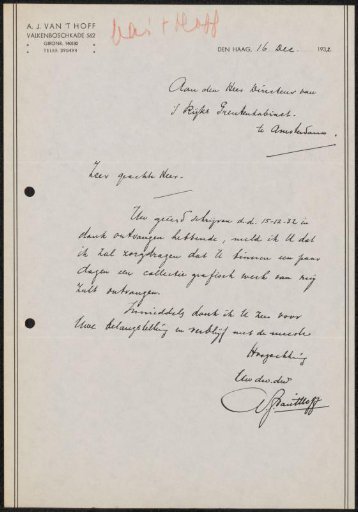 A. J. VAN 'T HOFF
VALKENBOSCHKADE 562
GIRONR. 140130
TELEF.
van 't Hoff
DEN HAAG, 16 Dec. 1932
Aan den Heer Directeur van
's Rijks Prentenkabinet.
te Amsterdam.
Zeer geachte Heer.
Uw geëerd schrijven d.d. 15-12-32 in
dank ontvangen hebbende, meld ik U dat
ik zal zorgdragen dat U binnen een paar
dagen een collectie grafisch werk van mij
zult ontvangen.
Inmiddels dank ik U zeer voor
Uwe belangstelling en verblijf met de meeste
Hoogachting
Uw dw. dnr
AJvan'tHoff